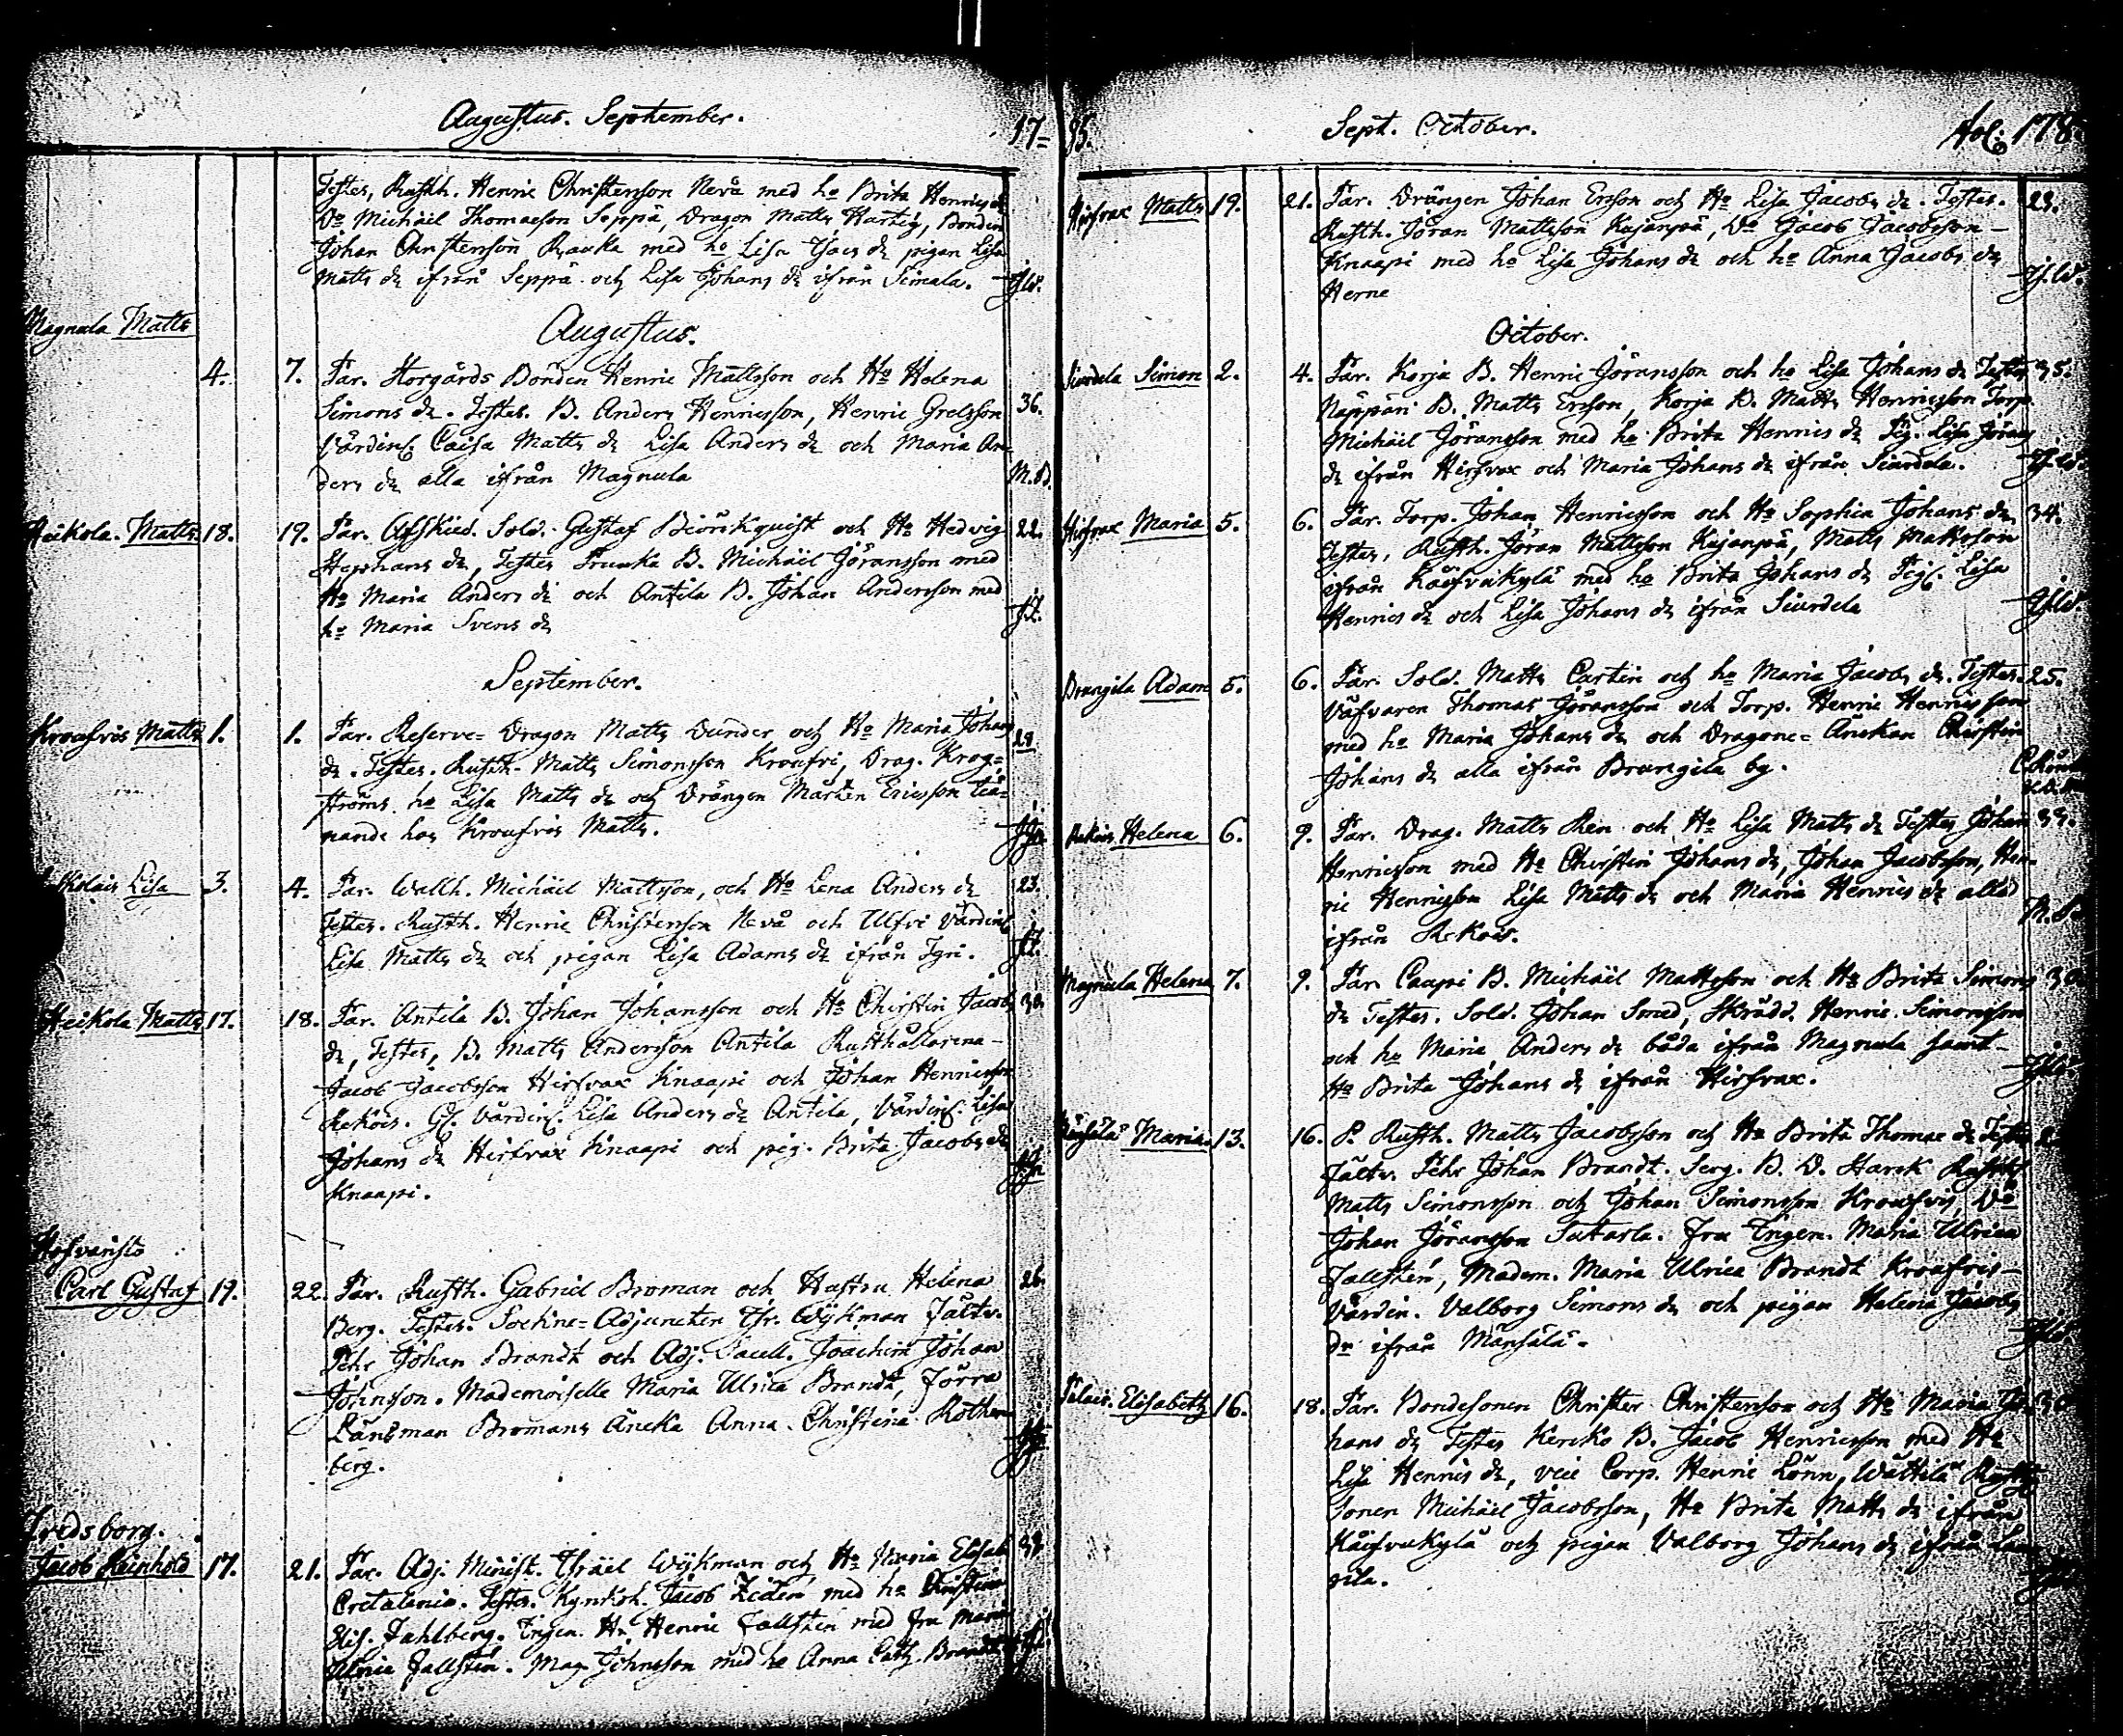 Augustus. September. 17=
Testes, Rusth. Henric Christersson Nevå med ho Brita Henrics dr
Do Michäel Thomasson Seppä, Dragon Matts Hartig, Bonden
Johan Christersson Rauka med ho Lisa dr pigan Lisa
Matts dr ifrån Seppä och Lisa Johans dr ifrån Simala.
Magnula Matts
Augustus.
4. 7. Får. Storgårds Bonden Henric Mattsson och Ho Helena
Simons dr. Testes. B. Anders Henricsson, Henric Grelsson 36.
Värdin. Caisa Matts dr Lisa Anders dr och Maria An-
ders dr alla ifrån Magnula
Heikola. Matts 18. 19. Får. Afskied. Sold. Gustaf Biörkquist och Ho Hedvig 22.
Stephans dr, Testes B. Michäel Jöransson med
Ho Maria Anders dr och Antila B. Johan Andersson med
ho Maria Svens dr
September.
Kroufvis Matts 1. 1. Får. Reserve=Dragon Matts Dunder och Ho Maria Johans
dr. Testes. Rusth. Matts Simonsson Kroufvi, Drag. Krog=
ströms ho Lisa Matts dr och Drängen Mårten Ericsson tiä=
nande hos Kroufvis Matts.
Lisa 3. 4. Får. Wallh. Michäel Mattsson, och Ho Lena Anders dr 23.
Testes. Rusth. Henric Christersson Nevå och Ulfvi Värdin
Lisa Matts dr och pigan Lisa Adams dr ifrån
Heikola Matts 17. 18. Får. Antila B. Johan Johansson och Ho Christin Jacobs 30.
dr, Testes, B. Matts Andersson Antila Rusthållarena-
Jacob Jacobsson Hirfvax Knaapi och Johan Henricsson
Rekois. Värdin. Lisa Anders dr Antila, Värdin. Lisa
Johans dr Hirfvax Knaapi och pig. Brita Jacobs dr
Knaapi.
Hofvaristo
Carl Gustaf 19. 22. Får. Rusth. Gabriel Broman och Hustru Helena 26.
Berg. Testes. Sockne=Adjuncten Isr. Wijkman Fältv.
Pehr Johan Brandt och Adj. Joachim Johan
Johnsson. Mademoiselle Maria Ulrica Brandt, Förra
Länsman Bromans Äncka Anna Christina Rothen-
berg.
Fredsborg.
Jacob Reinhold 17. 21. Får. Adj. Minist. Israël Wijkman och Ho Maria Elisab.
Cretalenia. Testes. Kyrkoh. Jacob Zidén med ho Christina
Elis. Fahlberg. Ingen. Hr Henric Fallstén med fru Maria
Ulrica Fallstén. Mag. Johnsson med ho Anna Cath. Brandt
85. Sept. October. Fol: 178.
Hirfvax Matts 19. 21. Får. Drängen Johan Ersson och Ho Lisa Jacobs dr. Testes. 23.
Rusth. Jöran Mattsson Kujanpä, Do Jacob Jacobsson-
Knaapi med ho Lisa Johans dr och ho Anna Jacobs dr
Herne
October.
Siurdela Simon 2. 4. Får. Korja B. Henric Jöransson och ho Lisa Johans dr Testes 35.
Näppäri B. Matts Ersson, Korja B. Matts Henricsson Torp.
Michäel Jöransson med ho Brita Henrics dr Pig. Lisa Jörans
dr ifrån Hirfvax och Maria Johans dr ifrån Siurdela.
Hirfvax Maria 5. 6. Får. Torp. Johan Henricsson och Ho Sophia Johans dr, 34.
Testes, Rusth. Jöran Mattsson Kujanpä, Matts Mattsson
ifrån Käifväkylä med ho Brita Johans dr Pig. Lisa
Henrics dr och Lisa Johans dr ifrån Siurdela
Brangila Adam 5. 6. Får. Sold. Matts Cartin och ho Maria Jacobs dr. Testes. 25.
Väfvaren Thomas Jöransson och Torp. Henric Henricsson
med ho Maria Johans dr och Dragone=Änckan Christin
Johans dr alla ifrån Brangila by.
Rekois Helena 6. 9. Får. Drag. Matts Ren och Ho Lisa Matts dr Testes Johan 33.
Henricsson med Ho Christin Johans dr, Johan Jacobsson, Hen-
ric Henricsson Lisa Matts dr och Maria Henrics dr alla
ifrån Rekois.
Magnula Helena 7. 9. Får. Caapi B. Michäel Mattsson och Ho Brita Simons
dr Testes. Sold. Johan Smed, Skrädd. Henric Simonsson
och ho Maria Anders dr båda ifrån Magnula samt-
Ho Brita Johans dr ifrån Hirfvax.
Mänsälä Maria. 13. 16. F. Rusth. Matts Jacobsson och Ho Brita Thomae dr Testes
Fältv. Pehr Johan Brandt. Serg. B. D. Harck Rusth.
Matts Simonsson och Johan Simonsson Kroufvis, Do
Johan Jöransson Sutarla. fru Ingen. Maria Ulrica
Fallstén, Madem. Maria Ulrica Brandt Kroufvis-
Värdin. Valborg Simons dr och pigan Helena Jacobs
dr ifrån Mänsälä.
Elisabeth 16. 18. Får. Bondesonen Christer Christersson och Ho Maria Jo-
hans dr Testes Kerko B. Jacob Henricsson med Ho
Lisa Henrics dr, vice Corp. Henric Lönn, Wättilä Rusth.
sonen Michäel Jacobsson, Ho Brita Matts dr ifrån
Käifväkylä och pigan Valborg Johans dr ifrån